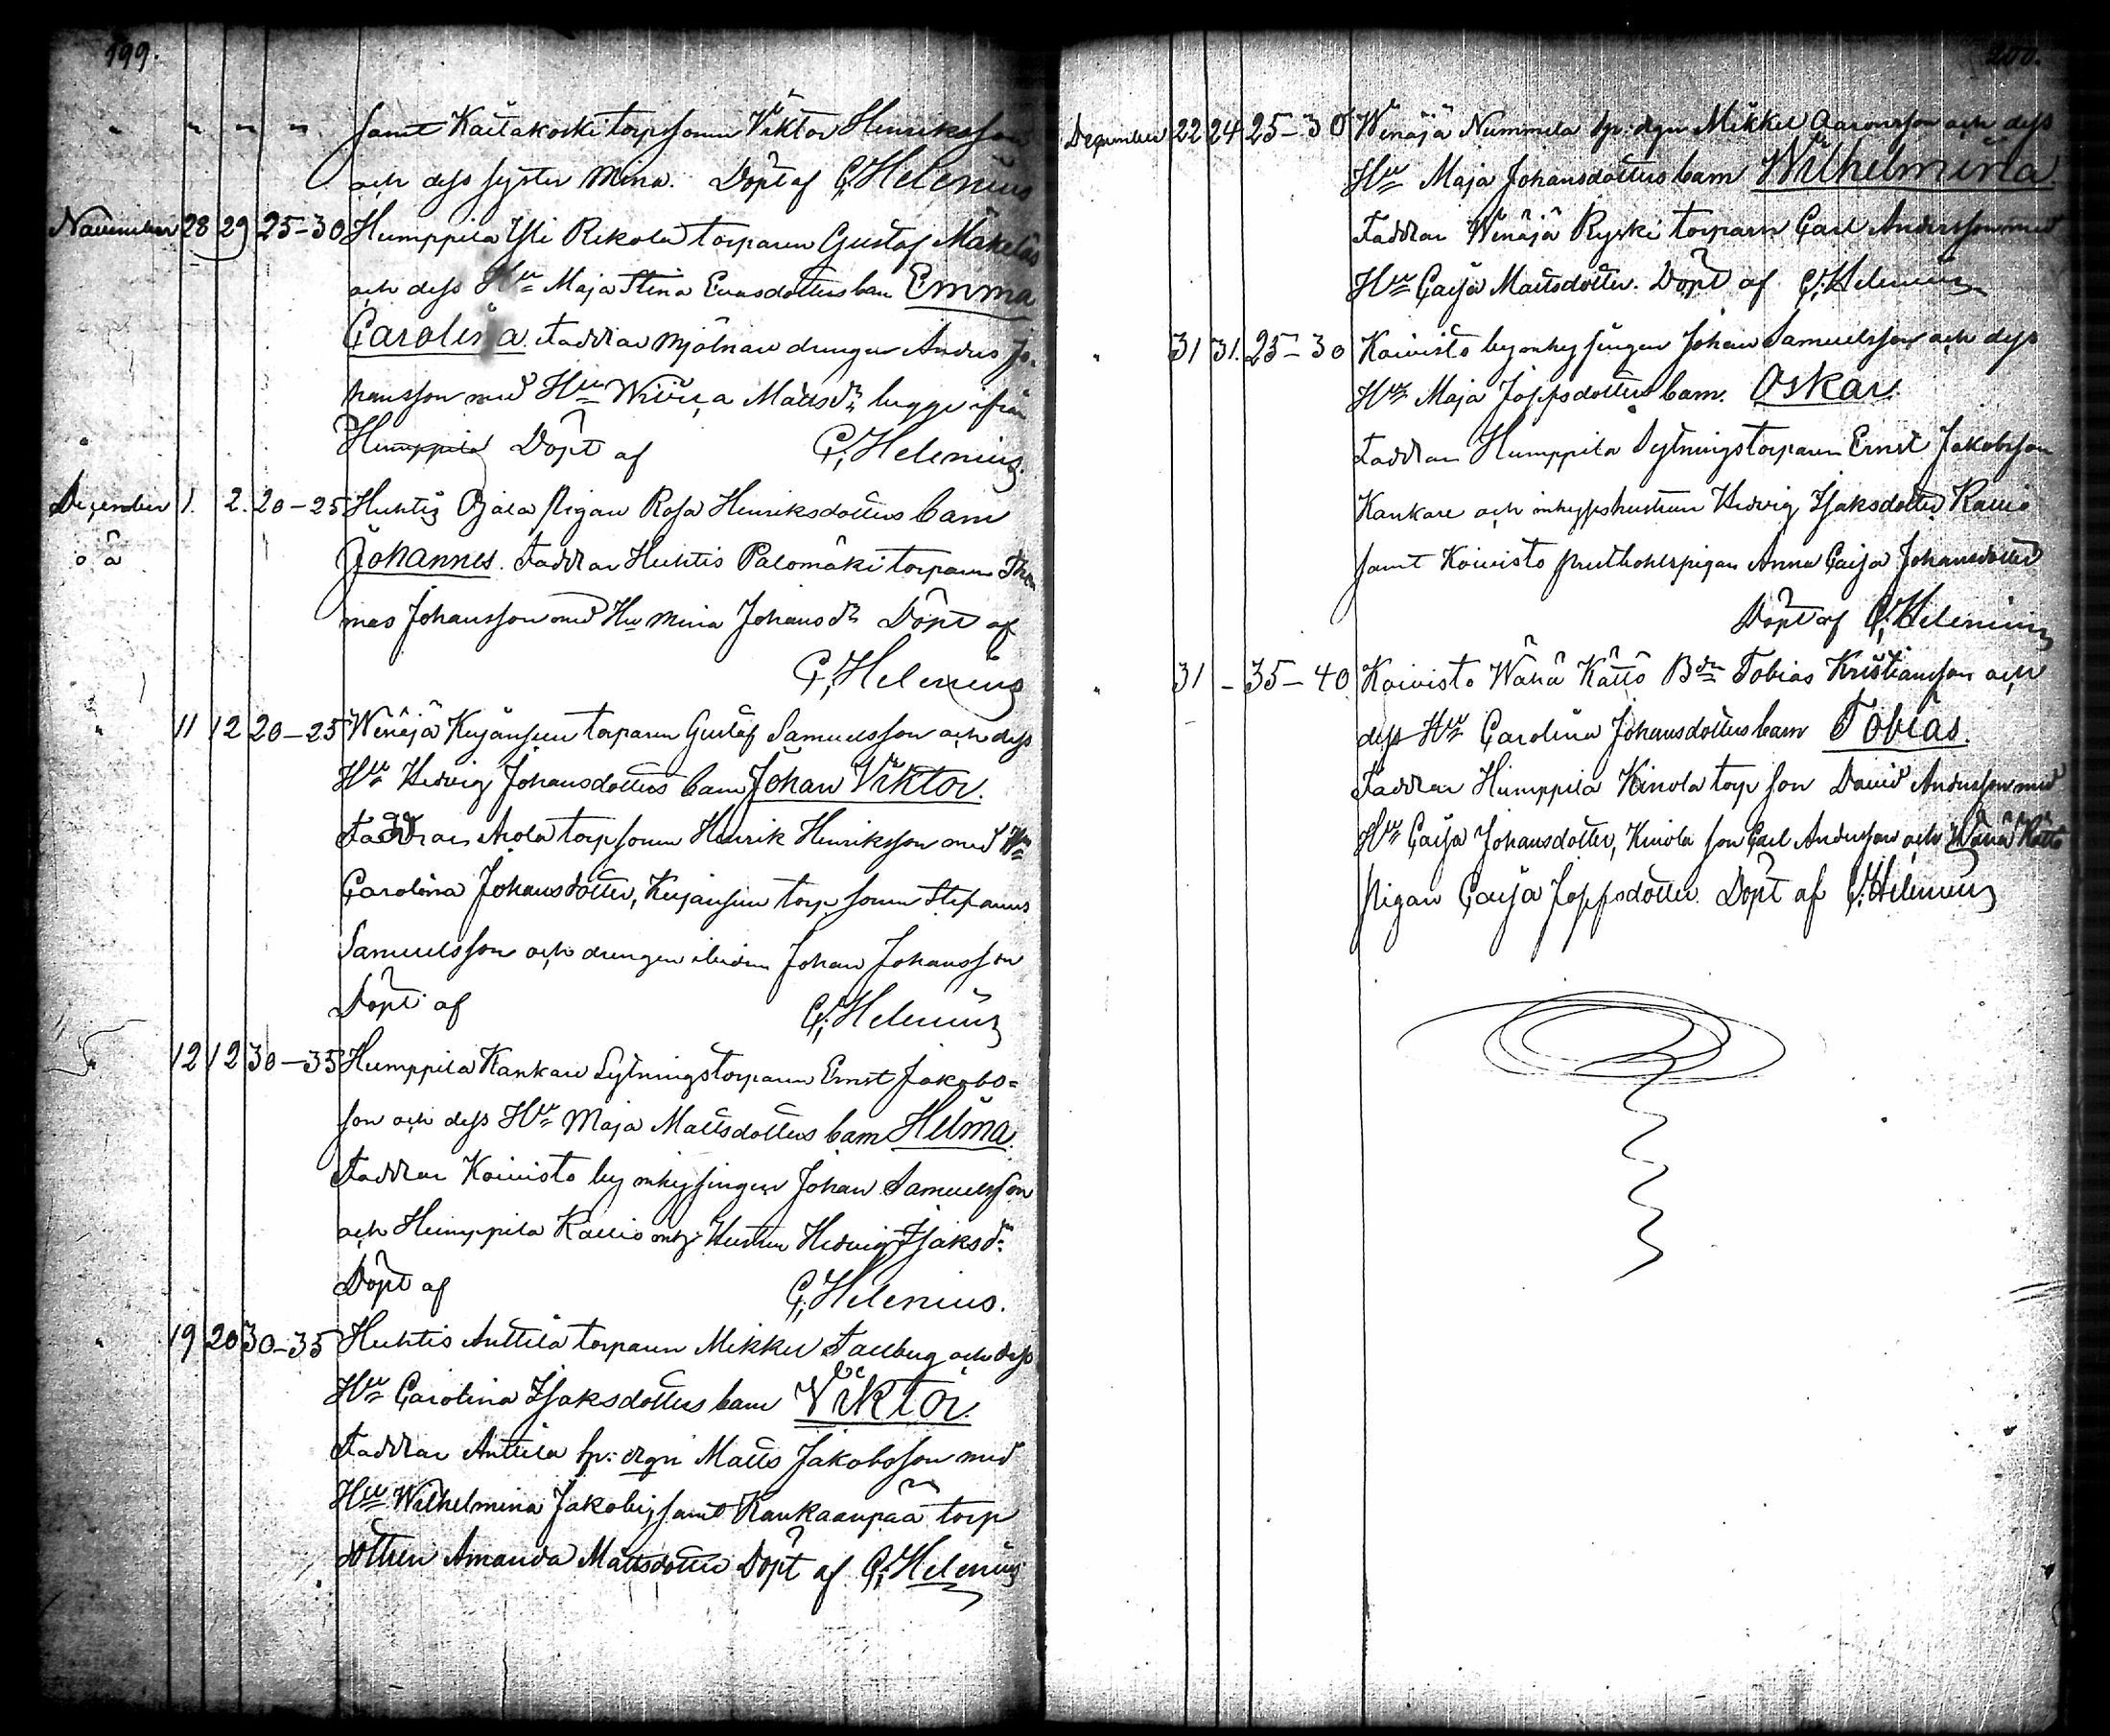 199.
samt Kaitakoski torpsonen Viktor Henriksson
och dess syster Mina. Döpt af G. Helenius
November 28 29 25-30 Humppila Yli Rekola torparen Gustaf Mäkelä
och dess Hu Maja Stina Evasdotters barn Emma
Carolina. Faddrar Mjölnare drengen Anders Jo-
hansson med Hu Wiiva Matsdr begge ifrån
Humppila Döpt af G. Helenius.
December 1. 2. 20-25 Huhtis Ojala Pigan Rosa Henriksdotters barn
o ä Johannes. Faddrar Huhtis Palomäki torparen Tho
mas Johansson med Hu Mina Johansdr Döpt af
G. Helenius
11 12 20-25 Wenäjä Keijänsuu torparen Gustaf Samuelsson och dess
Hu Hedvig Johansdotters barn Johan Viktor.
Faddrar torpsonen Henrik Henriksson med Hu
Carolina Johansdotter, Keijänsuu torp sonen Stefanus
Samuelsson och drengen ibidem Johan Johansson
Döpt af G. Helenius
12 12 30-35 Humppila Kankare Sytningstorparen Ernst Jakobs-
son och dess Hu Maja Mattsdotters barn Hilma.
Faddrar Koivisto by inhysingen Johan Samuelsson
och Humppila Kallio inh: Hustru Hedvig Isaksdr
Döpt af G. Helenius.
19 20 30-35 Huhtis Anttila torparen Mikkel Tallberg och dess
Hu Carolina Isaksdotters barn Viktor.
Faddrar Anttila sp: drgn Matts Jakobsson med
Hu Wilhelmina Jakobi, samt Kankaanpää torp
dottren Amanda Mattsdotter Döpt af G. Helenius
200.
December 22 24 25-30 Wenäjä Nummela sp: dgn Mikkel Aaronsson och dess
Hu Maja Johansdotters barn Wilhelmina.
Faddrar Wenäjä Ryski torparn Carl Andersson med
Hu Caisa Mattsdotter. Döpt af G. Helenius
31 31. 25-30 Koivisto by inhysingen Johan Samuelsson och dess
Hu Maja Josepsdotters barn. Oskar.
Faddrar Humppila Sytningstorparen Ernst Jakobsson
Kankare och inhyseshustrun Hedvig Isaksdotter Kallio
samt Koivisto Anna Caisa Johansdotter
Döpt af G. Helenius
31 - 35-40 Koivisto Wähä Kättö Bdn Tobias Kristiansson och
dess Hu Carolina Johansdotters barn Tobias.
Faddrar Humppila Kinola torp son David Andersson med
Hu Caisa Johansdotter, Kinola son Carl Andersson och Wähä Kättö
Pigan Caisa Josepsdotter. Döpt af G. Helenius